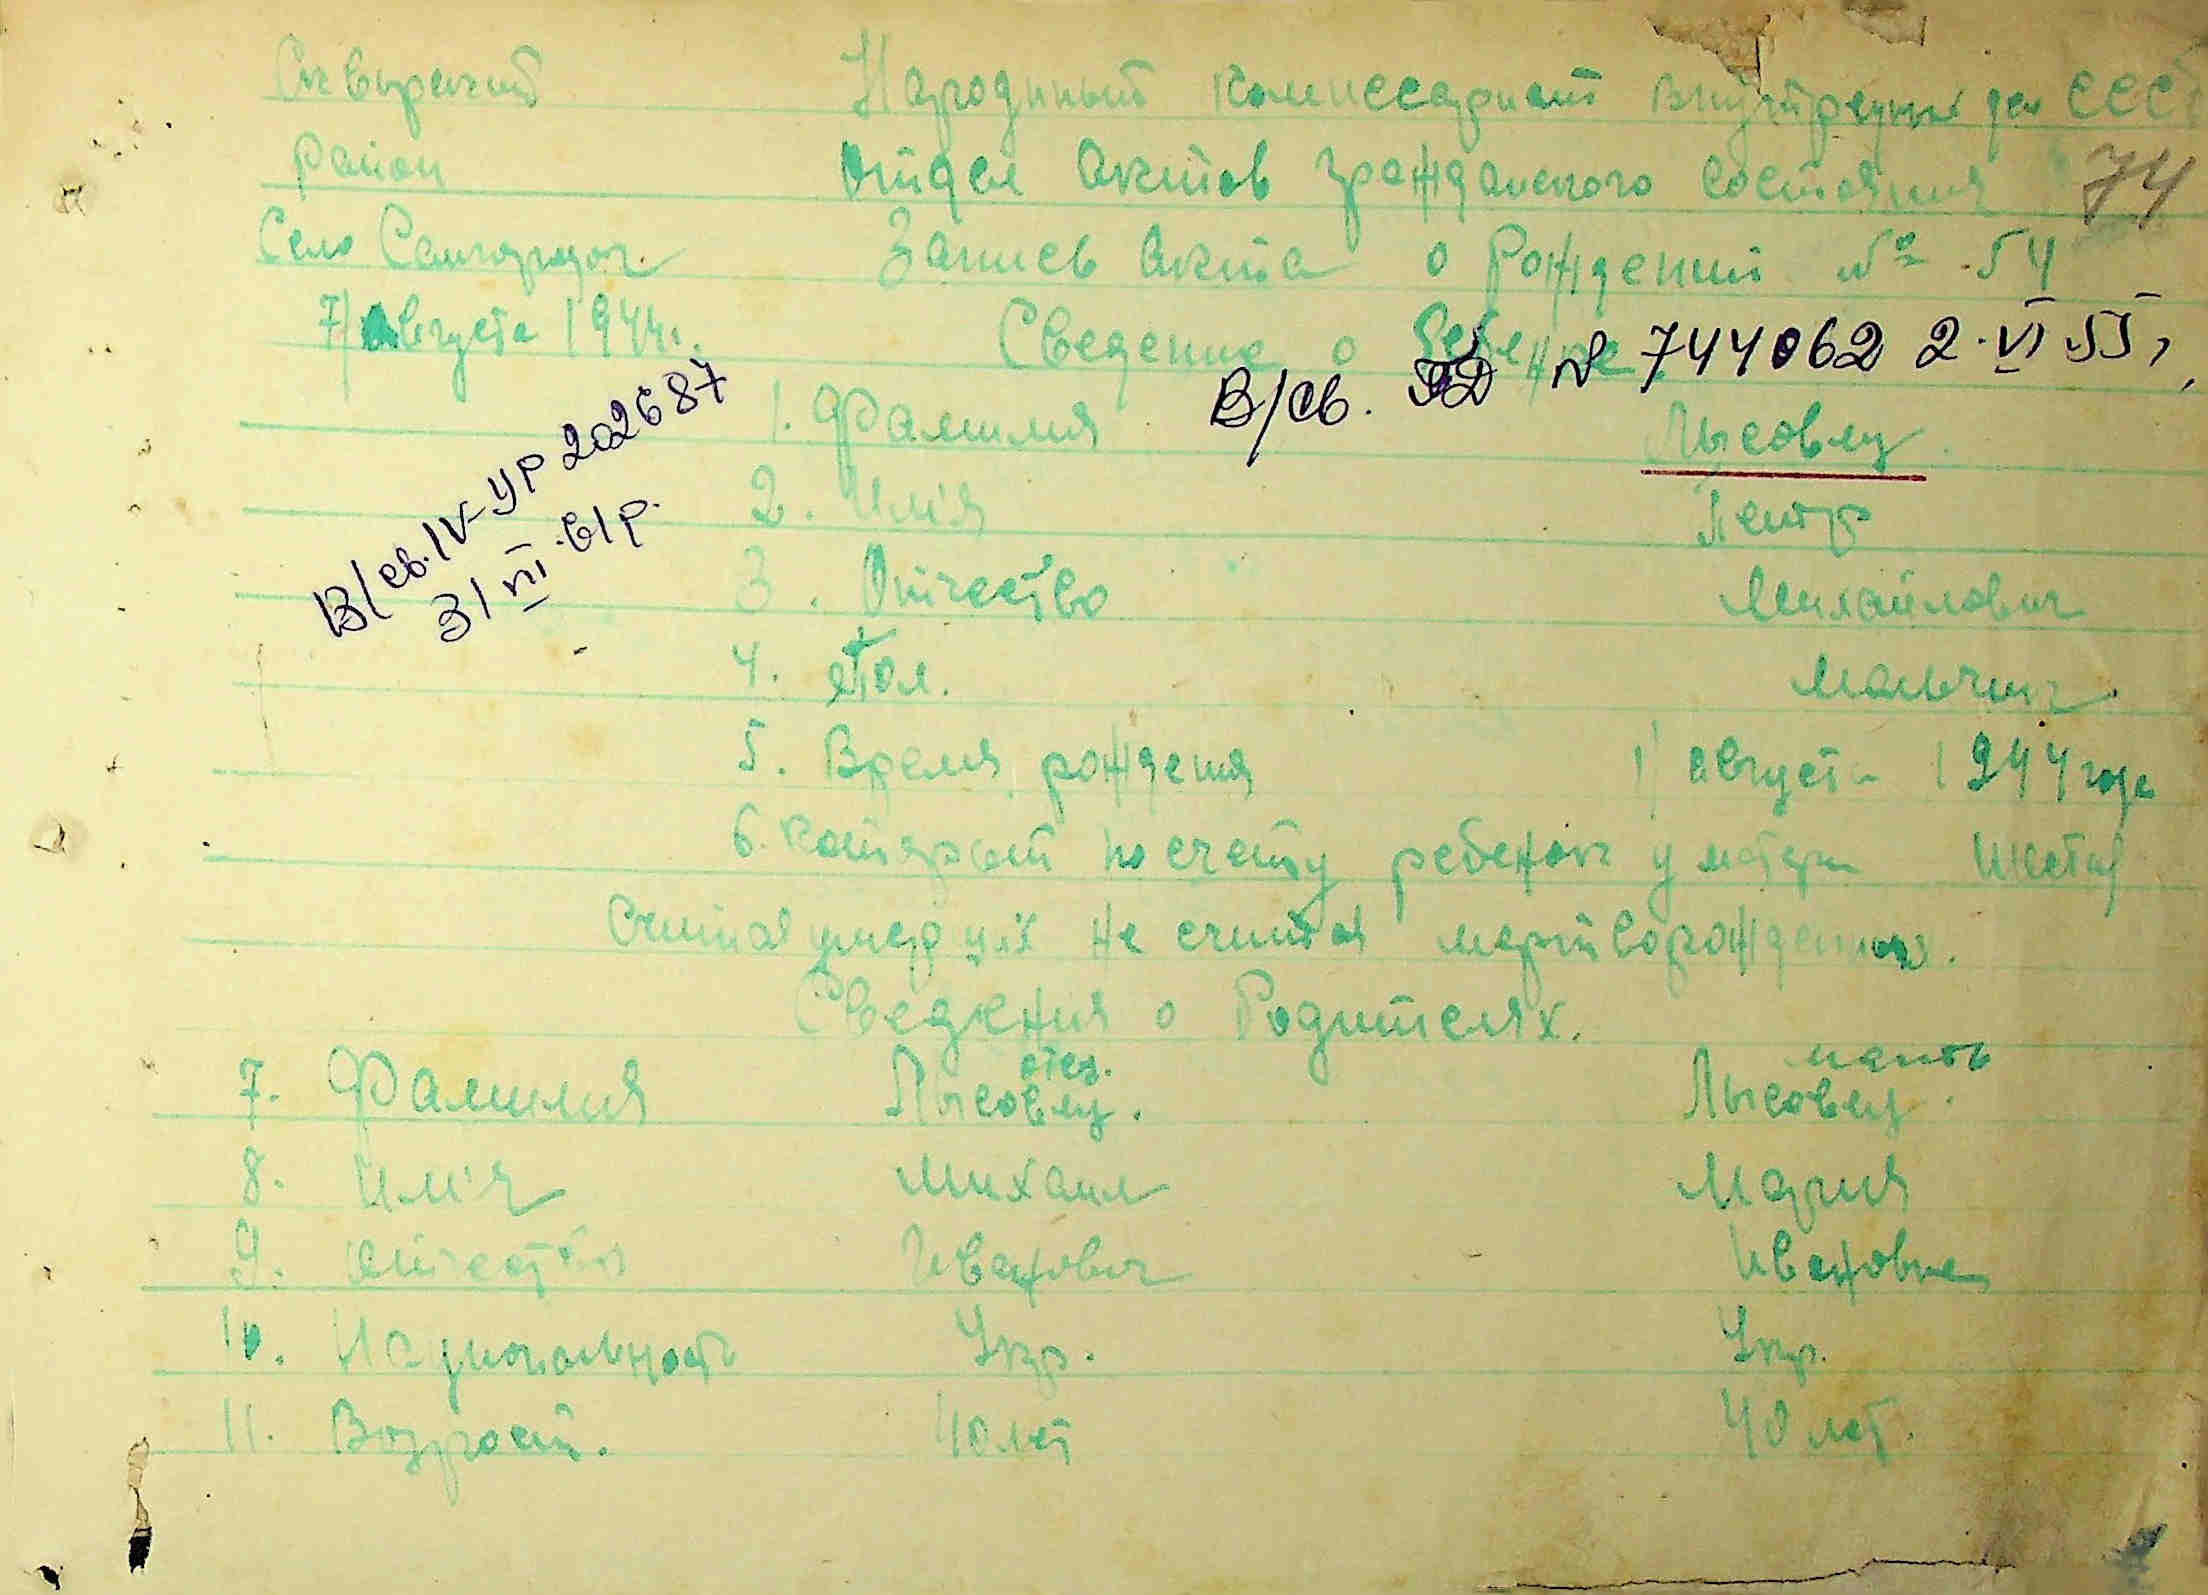 Сквирский Народный комиссариат внутренних дел СССР
район Отдел Актов гражданского состояния 74
Село Самгородок Запись Акта о Рождении № 54
7/Августа 1944г. Сведение о Ребенке
В/св. № 744062 2.VI 55г,
1. Фамилия Лысовец.
В/св. IV-УР 202687
31 VII.61р.
2. Им'я Петр
3. Отчество Михайлович
4. Пол. Мальчик
5. Время рождения 1/августа 1944 года
6. Который по счету ребенок у матери шестий
Считая умерших не считая мертворожденых.
Сведения о Родителях.
отец. мать
7. Фамилия Лысовец. Лысовец.
8. Им'я Михаил Мария
9. Отчество Иванович Ивановна
10. Национальность Укр. Укр.
11. Возраст. 40 лет 40 лет.